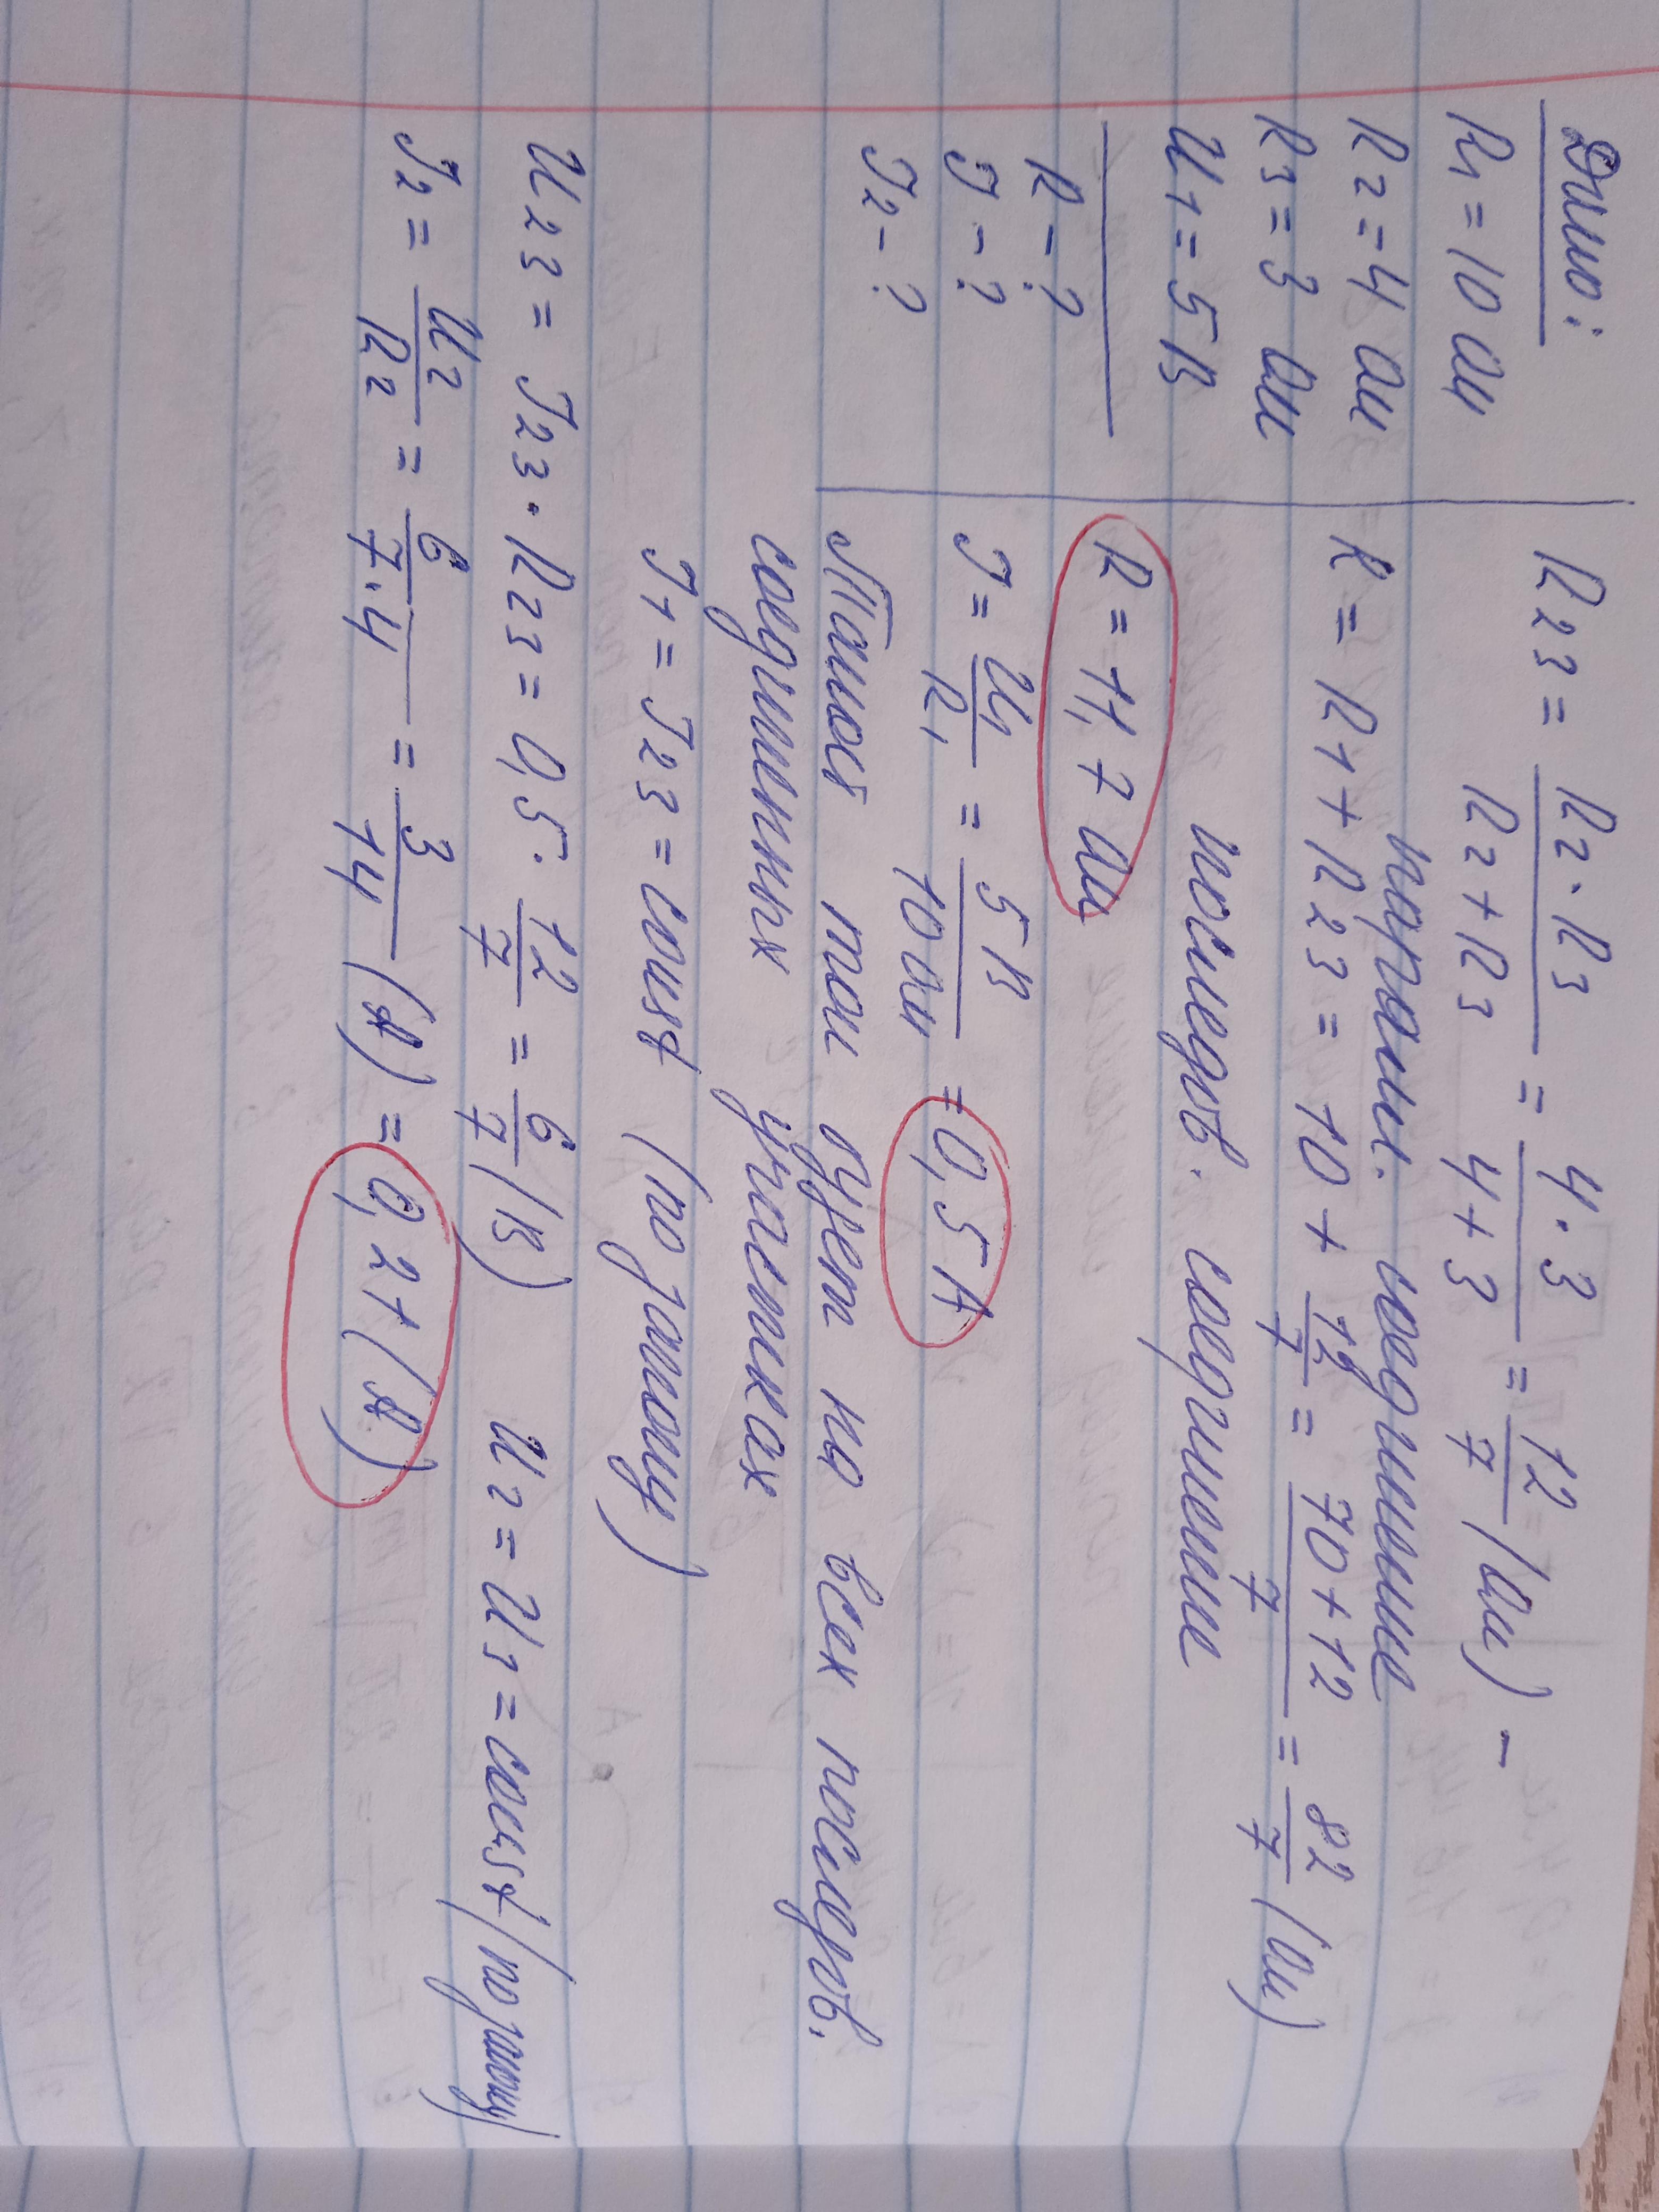 Дано:
R1 = 10 Ом
R2 = 4 Ом
R3 = 3 Ом
U1 = 5 В
R - ?
I - ?
I2 - ?
R23 = R2 · R3 / R2 + R3 = 4 · 3 / 4 + 3 = 12/7 (Ом) –
паралл. соединение
R = R1 + R23 = 10 + 12/7 = 70+12/7 = 82/7 (Ом)
последов. соединение
R = 11,7 Ом
I = U1/R1 = 5 В/10 Ом = 0,5 А
Такой ток будет на всех последов.
соединенных участках
I1 = I23 = const (по закону)
U23 = I23 · R23 = 0,5 · 12/7 = 6/7 (В) U2 = U3 = const (по закону)
I2 = U2/R2 = 6/7·4 = 3/14 (А) = 0,21 (А)